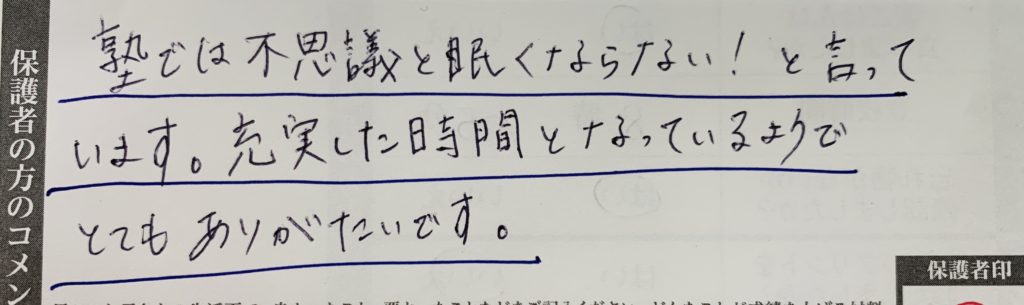 保護者の方のコメン
塾では不思議と眠くならない!と言って
います。充実した日時間となっているようで
とてもありがたいです。
保護者印